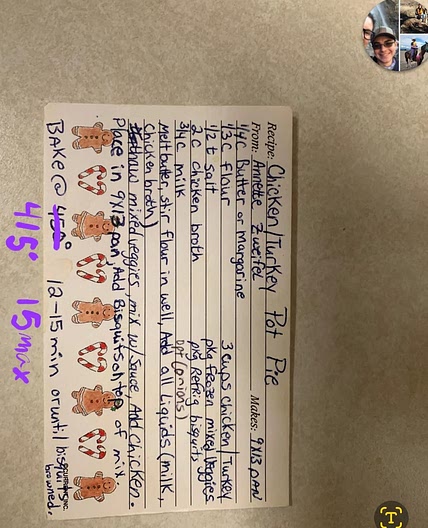 Recipe: Chicken/Turkey Pot Pie
From: Annette Zweifel Makes: 9X13 pan
1/4 c Butter or margarine 3 cups chicken/Turkey
1/3 c flour pkg frozen mixed veggies
1/2 t salt pkg Refrig bisquits
2 c chicken broth opt (onions)
3/4 c milk
Melt butter, stir flour in well, Add all Liquids (milk,
chicken broth)
thaw mixed veggies, mix w/ sauce, Add chicken.
Place in 9X13 pan, Add Bisquits on top of mix.
BAKE @ 450° 12-15 min or until bisquits browned.
415° 15 max